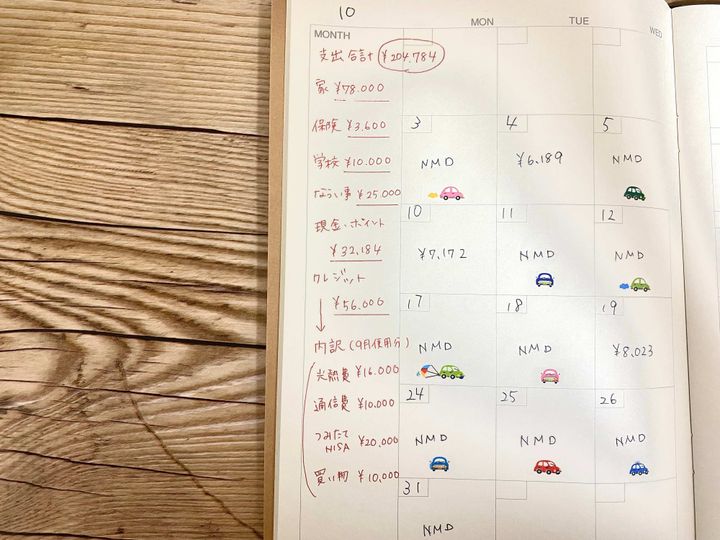 10
MONTH
MON
TUE
WED
支出合計 ¥204.784
家 ¥78.000
保険 ¥3.600
学校 ¥10.000
ならい事 ¥25.000
現金・ポイント
¥32.184
クレジット
¥56.000
内訳(9月使用分)
光熱費 ¥16.000
通信費 ¥10.000
つみたて
NISA ¥20,000
買い物 ¥10,000
3
4
5
NMD
¥6.189
NMD
10
11
12
¥7,172
NMD
NMD
17
18
19
NMD
NMD
¥8,023
24
25
26
NMD
NMD
NMD
31
NMD